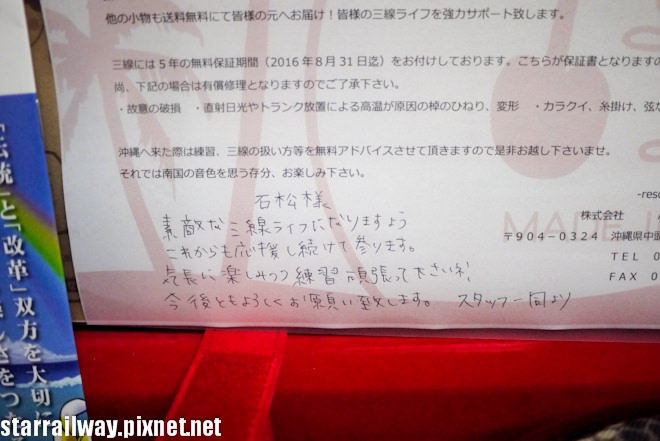 他の小物も送料無料にて皆様の元へお届け！皆様の三線ライフを強力サポート致します。
三線には５年の無料保証期間（2016年8月31日迄）をお付けしております。こちらが保証書となりますの
尚、下記の場合は有償修理となりますのでご了承下さい。
・故意の破損　・直射日光やトランク放置による高温が原因の棹のひねり、変形　・カラクイ、糸掛け、弦
沖縄へ来た際は練習、三線の扱い方等を無料アドバイスさせて頂きますので是非お越し下さいませ。
それでは南国の音色を思う存分、お楽しみ下さい。
石松様
素敵な三線ライフになりますよう
これからも応援し続けて参ります。
気長に楽しみつつ練習頑張って下さいネ!
今後ともよろしくお願い致します。　スタッフ一同より
株式会社
〒904-0324　沖縄県中頭
TEL 0
FAX 0
MADE I
「伝統」と「改革」双方を大切に
starrailway.pixnet.net